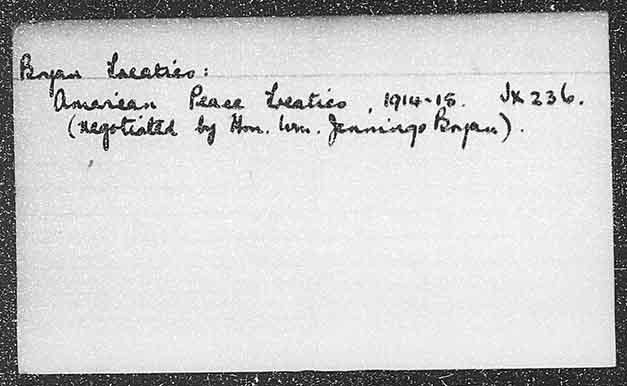 Bryan Treaties:
American Peace Treaties, 1914-15. Jx 236.
(negotiated by Hon. Wm. Jennings Bryan).